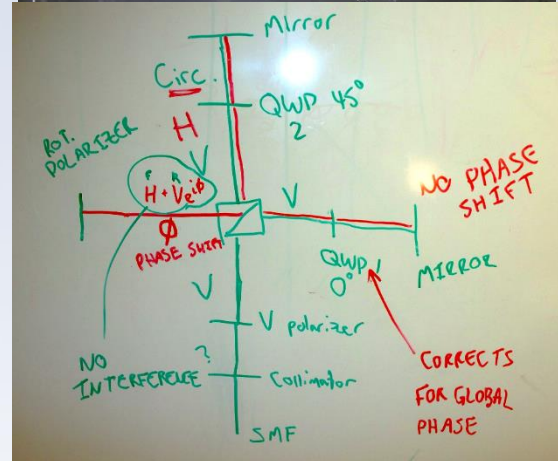 Mirror
Circ.
QWP 45°
2
H
ROT.
POLARIZER
V
H + Ve^iϕ
V
NO PHASE
SHIFT
ϕ
PHASE SHIFT
QWP 1
0°
MIRROR
V
V polarizer
NO
INTERFERENCE ?
Collimator
CORRECTS
FOR GLOBAL
PHASE
SMF